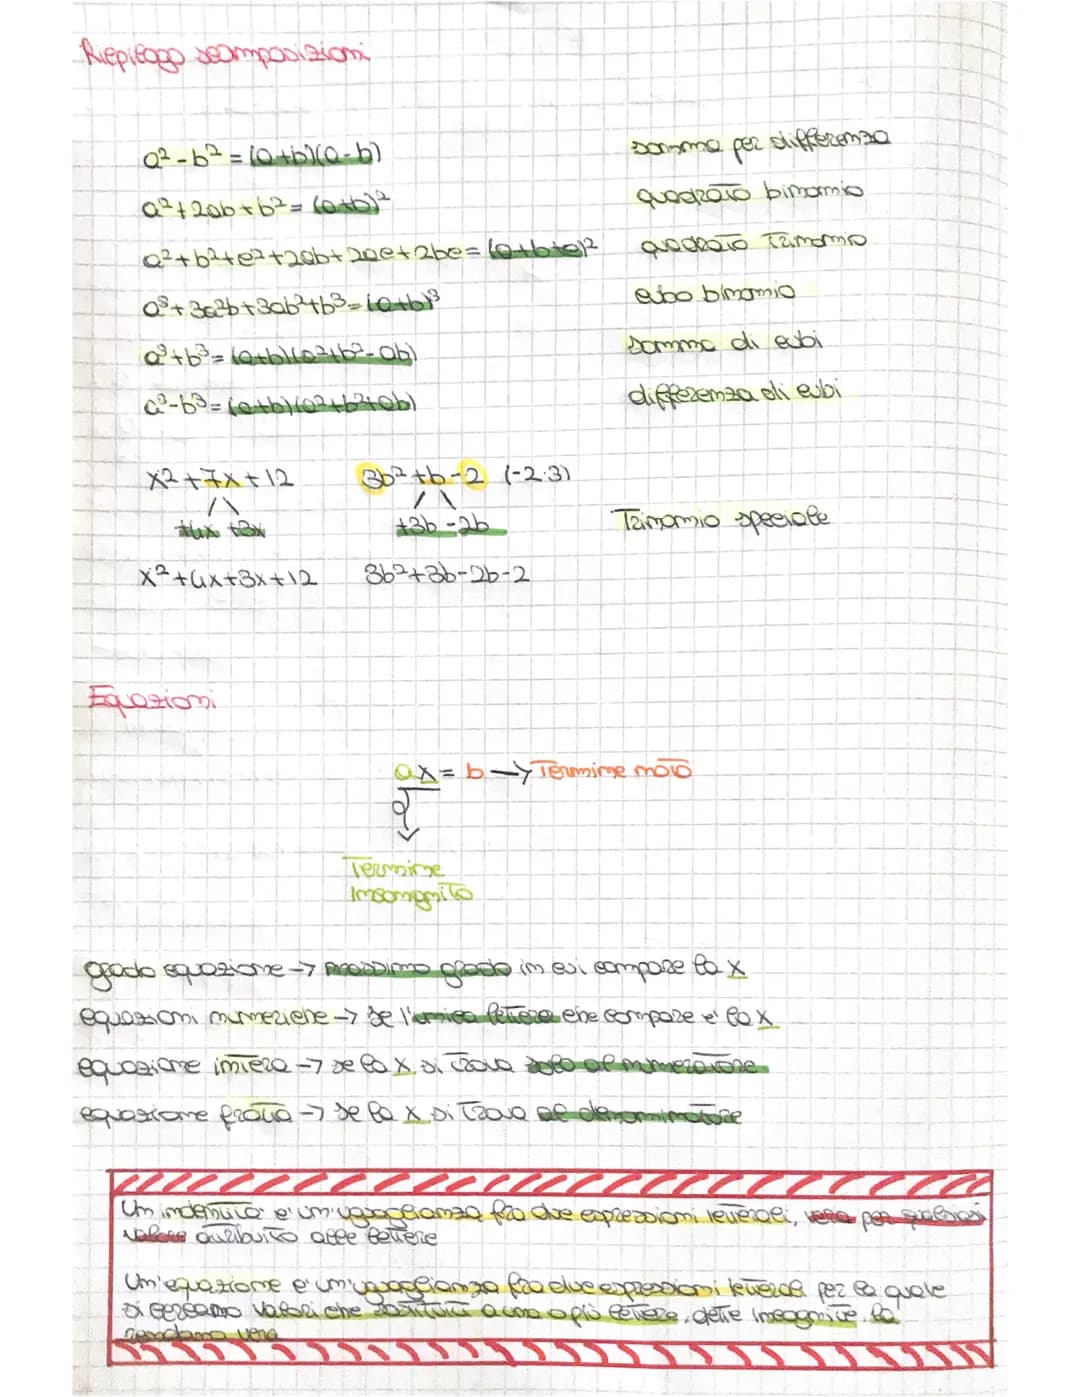 Riepilogo scomposizioni
a²-b² = (a+b)(a-b) somma per differenza
a²+2ab+b² = (a+b)² quadrato binomio
a²+b²+c²+2ab+2ac+2bc = (a+b+c)² quadrato trinomio
a³+3a²b+3ab²+b³ = (a+b)³ cubo binomio
a³+b³ = (a+b)(a²+b²-ab) somma di cubi
a³-b³ = (a+b)(a²+b²+ab) differenza di cubi
x²+7x+12 3b²+b-2 (-2·3)
+4x +3x +3b -2b Trinomio speciale
x²+4x+3x+12 3b²+3b-2b-2
Equazioni
ax = b → Termine noto
Termine
Inscognito
grado equazione → massimo grado in cui compare la x
equazioni numeriche → se l'unica lettera che compare e' la x
equazione intera → se la x si trova solo al numeratore
equazione fratta → se la x si trova al denominatore
Un indentità e' un'uguaglianza fra due espressioni letterali, vera per qualsiasi
valore attribuito alle lettere
Un'equazione e' un'uguaglianza fra due espressioni letterali per la quale
si cercano valori che sostituiti a una o più lettere, dette incognite, la
rendano vera